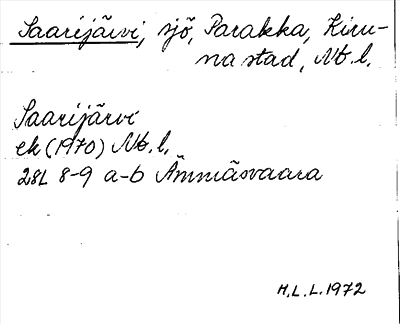 Saarijärvi, sjö, Parakka, Kiru-
na stad, Nb.l.
Saarijärvi
ek (1970) Nb.l.
28L 8-9 a-b Ämmäsvaara
H.L.L. 1972